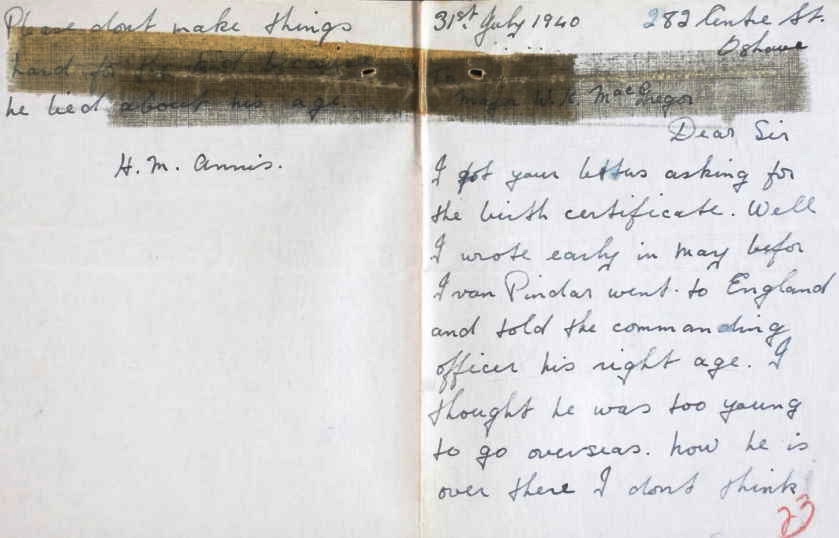 Please dont make things
hard for the kid because
he lied about his age.
H. M. Annis.
31st July 1940
282 Centre St.
Oshawa
Major W. K. MacGregor
Dear Sir
I got your letters asking for
the birth certificate. Well
I wrote early in May befor
Ivan Pindar went to England
and told the commanding
officer his right age. I
thought he was too young
to go overseas. now he is
over there I dont think
23